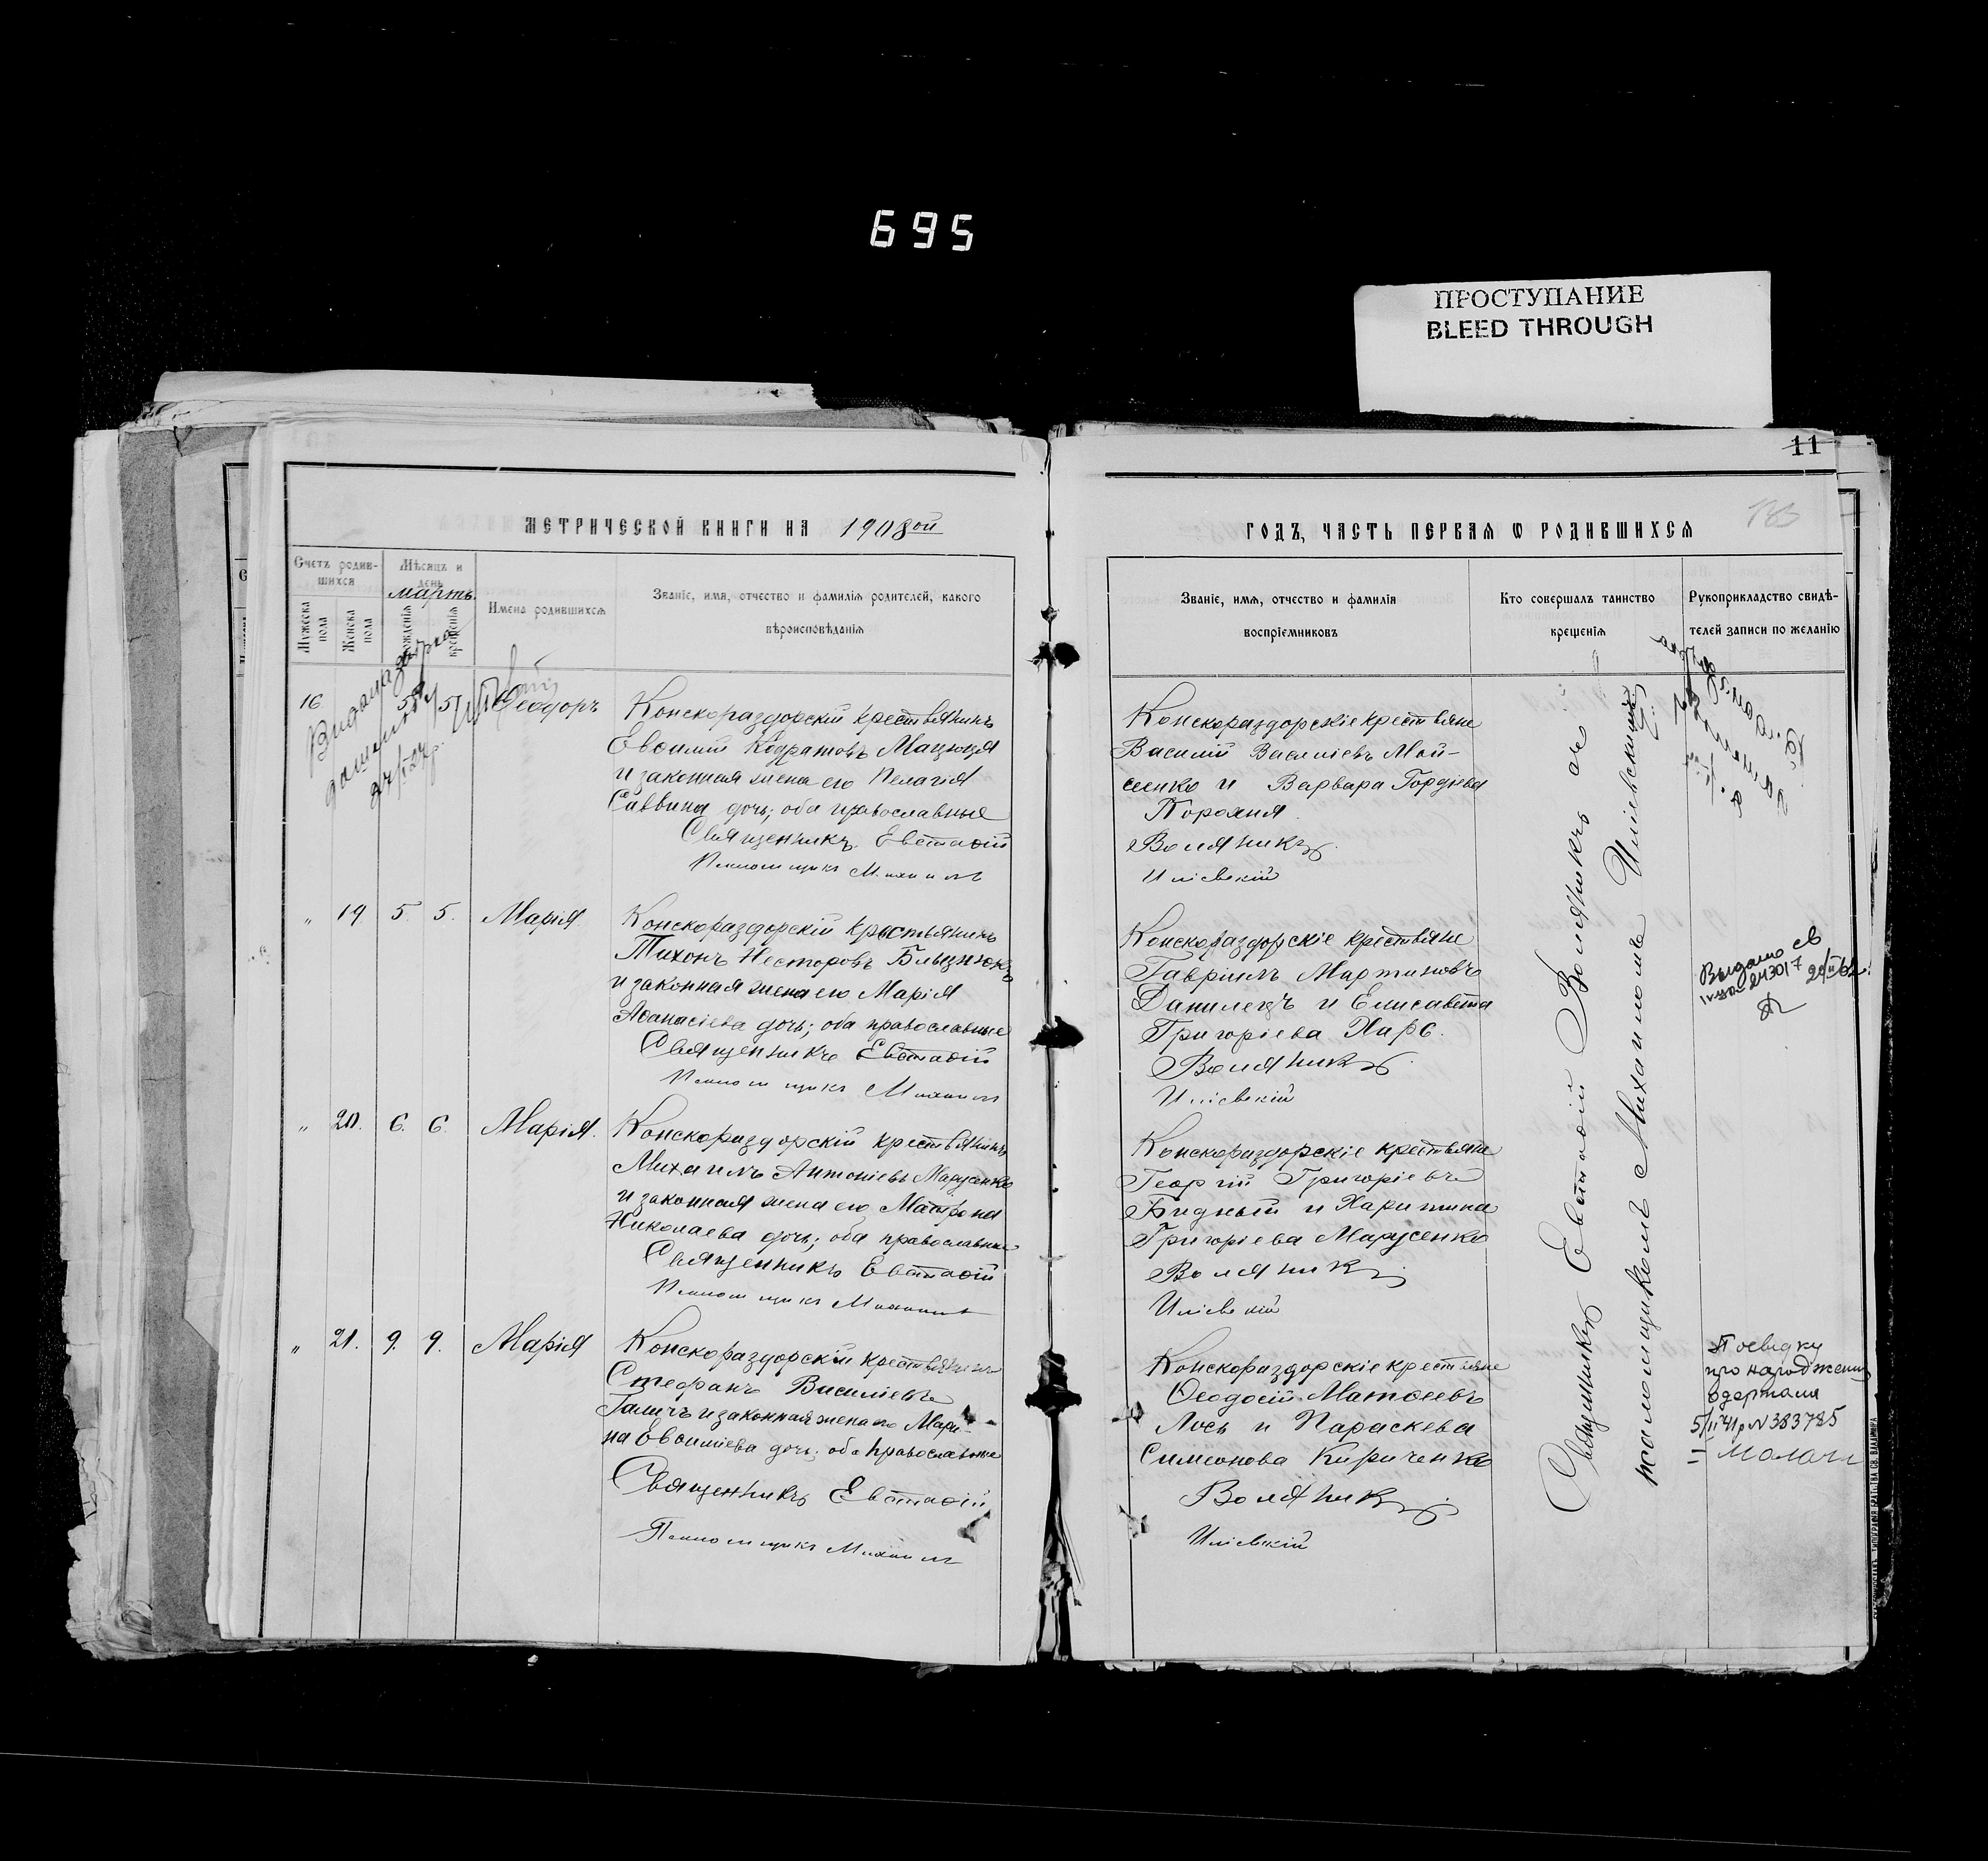 695
ПРОСТУПАНИЕ
BLEED THROUGH
11
МЕТРИЧЕСКОЙ КНИГИ НА 1908ой
ГОДЪ, ЧАСТЬ ПЕРВАЯ Ѡ РОДИВШИХСЯ
Счетъ родив-
шихся
Мѣсяцъ и
день
мартъ
Мужеска
пола
Женска
пола
рожденія
крещенія
Имена родившихся
Званіе, имя, отчество и фамилія родителей, какого
вѣроисповѣданія
Званіе, имя, отчество и фамилія
воспріемниковъ
Кто совершалъ таинство
крещенія
Рукоприкладство свидѣ-
телей записи по желанію
16
5
5
Ѳеодоръ
Конскораздорскій крестьянинъ
Евѳимій Кодратовъ Мацюця
и законная жена его Пелагія
Саввина дочь; оба православные
Священникъ Евстаѳій
Псаломщикъ Михаилъ
Конскораздорскіе крестьяне
Василій Василіевъ Мой-
сенко и Варвара Гордіева
Порохня
Воляникъ
Иліевскій
" 19. 5. 5. Марія
Конскораздорскій крестьянинъ
Тихонъ Несторовъ Бльизнюкъ
и законная жена его Марія
Аѳанасіева дочь; оба православные
Священникъ Евстаѳій
Псаломщикъ Михаилъ
Конскораздорскіе крестьяне
Гавріилъ Мартиновъ
Данилецъ и Елисавета
Григоріева Харс.
Воляникъ
Иліевскій
" 20. 6. 6. Марія.
Конскораздорскій крестьянинъ
Михаилъ Антоніевъ Марусенко
и законная жена его Матрона
Николаева дочь; оба православные
Священникъ Евстаѳій
Псаломщикъ Михаилъ
Конскораздорскіе крестьяне
Георгій Григоріевъ
Бидный и Харитина
Григоріева Марусенко
Воляникъ
Иліевскій
" 21. 9. 9. Марія
Конскораздорскій крестьянинъ
Стефанъ Василіевъ
Галичъ и законная жена его Мари-
на Евѳиміева дочь; оба православные
Священникъ Евстаѳій
Псаломщикъ Михаилъ
Конскораздорскіе крестьяне
Ѳеодосій Матѳеевъ
Лось и Параскева
Симеонова Кириченко
Воляникъ
Иліевскій
Священникъ Евстаѳій Воляникъ съ
псаломщикомъ Михаиломъ Иліевскимъ
Выдано св
243017
Посвідку
про народження
одержала
5/II 41р N 383785